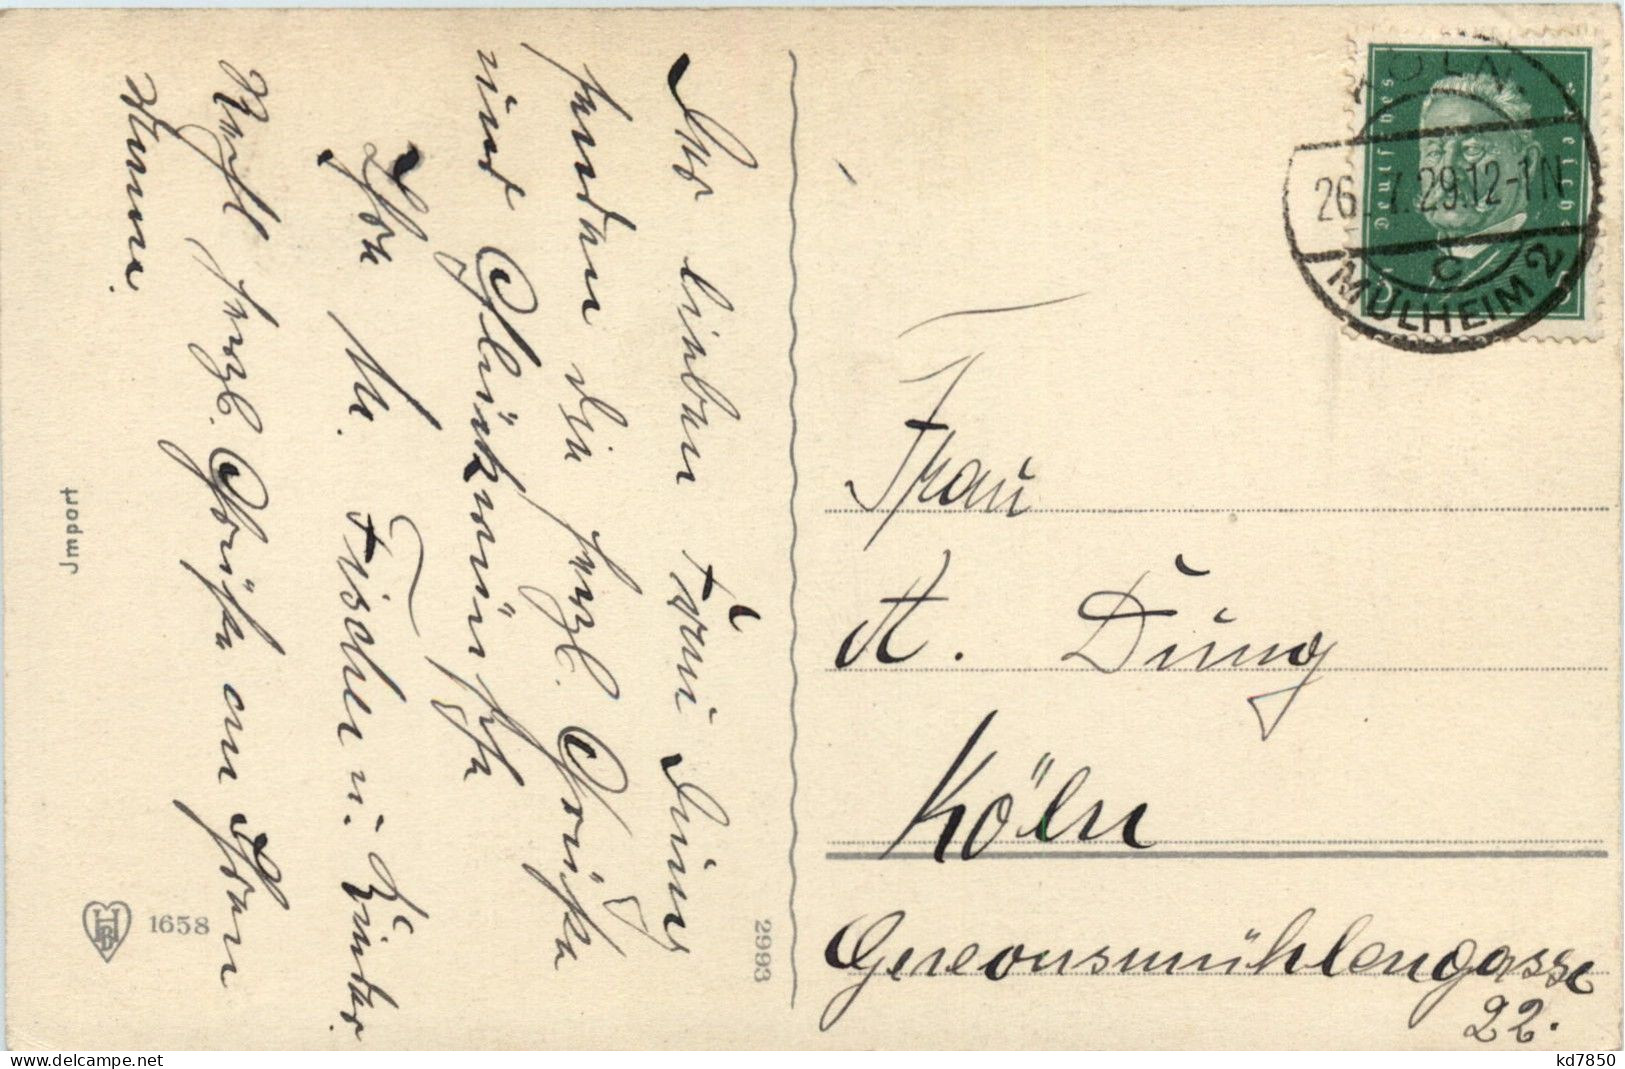 Der lieben Frau Düng
senden die herzl. Grüße
und Glückwünsche
Ihre Fr. Fischer u. Kinder.
Recht herzl. Grüße an Ihren
Mann.
Jmport
1658
2993
KÖLN-
26. 7.29.12-1N
c
MÜLHEIM 2
Deutsches Reich
Frau
A. Düng
Köln
Gereonsmühlengasse
22.
kd7850